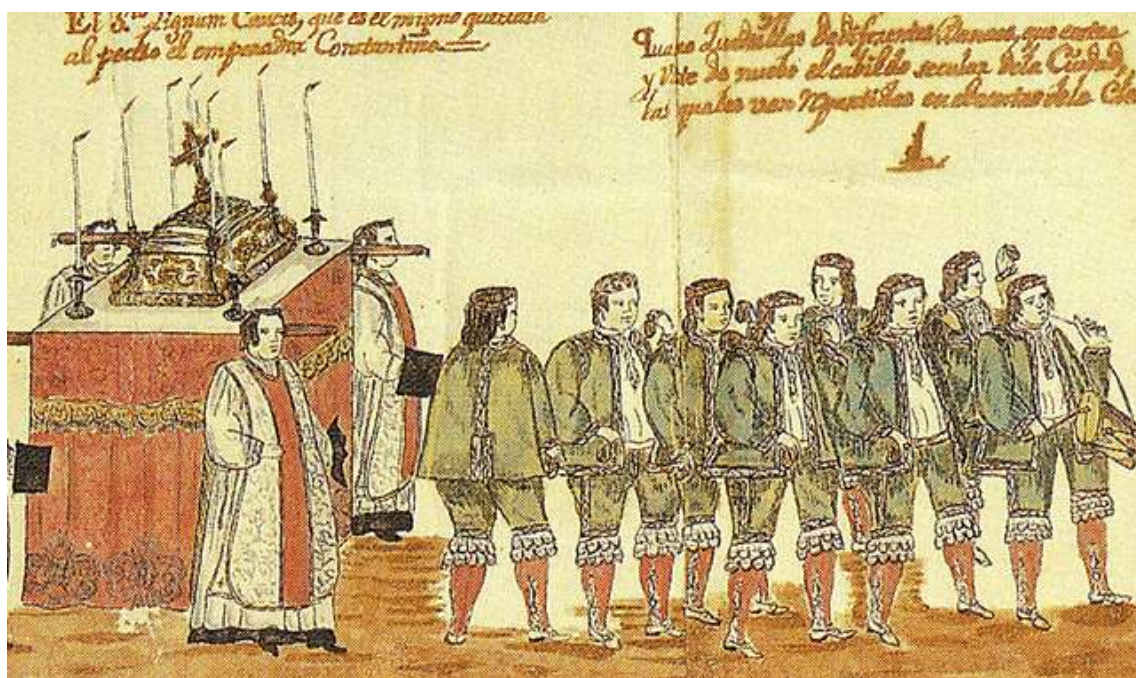 El S.to Lignum Crucis, que es el mismo que traia
al pecho el emperador Constantino
Quatro Quadrillas de diferentes Danzas, que costea
y viste de nuebo el cabildo secular de la Ciudad,
las quales van repartidas en el